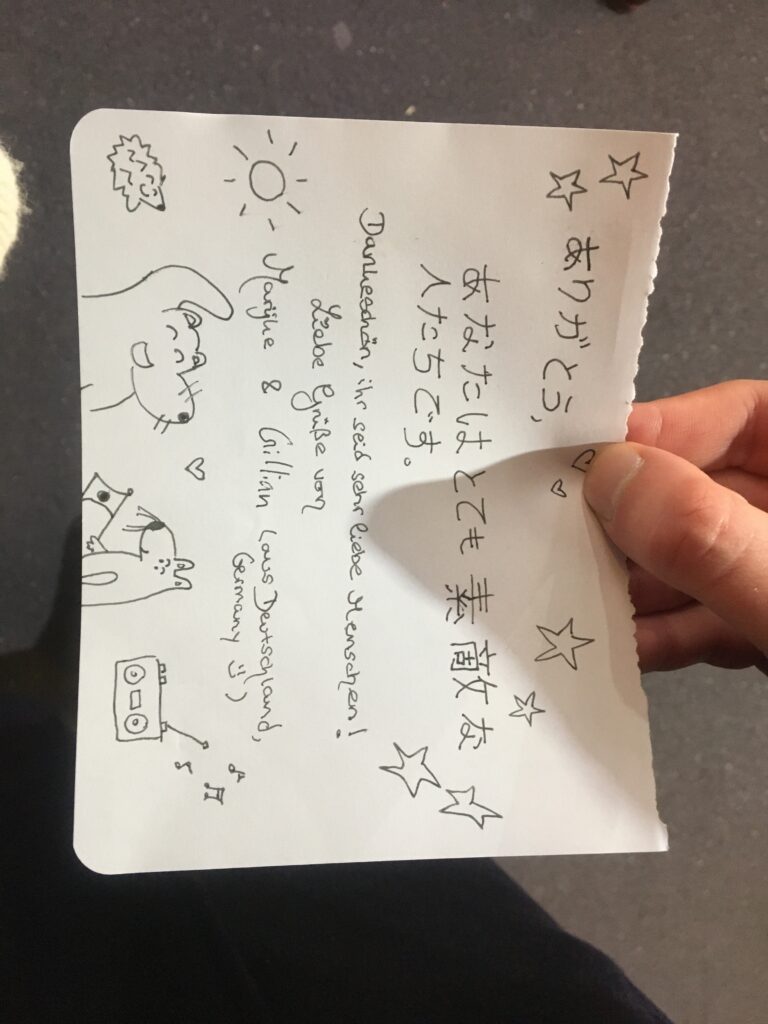 ありがとう,
あなたはとても素敵な
人たちです。
Dankeschön, ihr seid sehr liebe Menschen!
Liebe Grüße von
Marijke & Gillian (aus Deutschland,
Germany ☺)